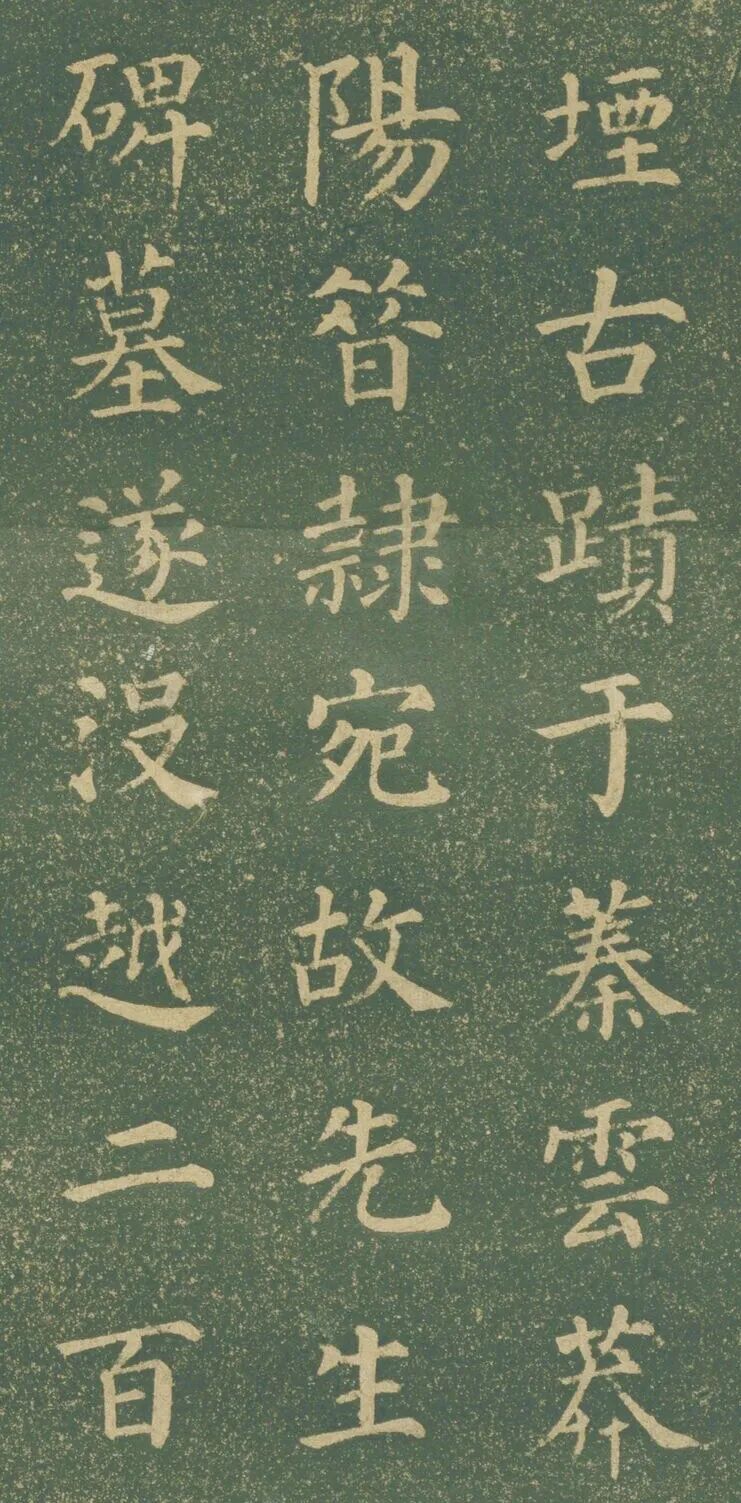 堙古蹟于蓁雲莽
陽㫺隸宛故先生
碑墓遂沒越二百